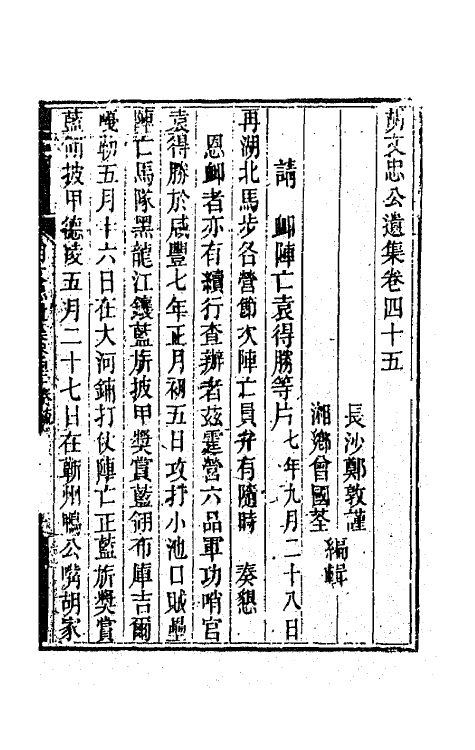 胡文忠公遺集卷四十五
長沙鄭敦謹
湘鄉曾國荃
編輯
請 卹陣亡袁得勝等片 七年九月二十八日
再湖北馬步各營節次陣亡員弁有隨時 奏懇
恩卹者亦有續行查辦者茲霆營六品軍功哨官
袁得勝於咸豐七年正月初五日攻打小池口賊壘
陣亡馬隊黑龍江鑲藍旂披甲獎賞藍翎布庫吉爾
嘎勒五月十六日在大河鋪打仗陣亡正藍旂獎賞
藍翎披甲德淩五月二十七日在蘄州鴨公嘴胡家